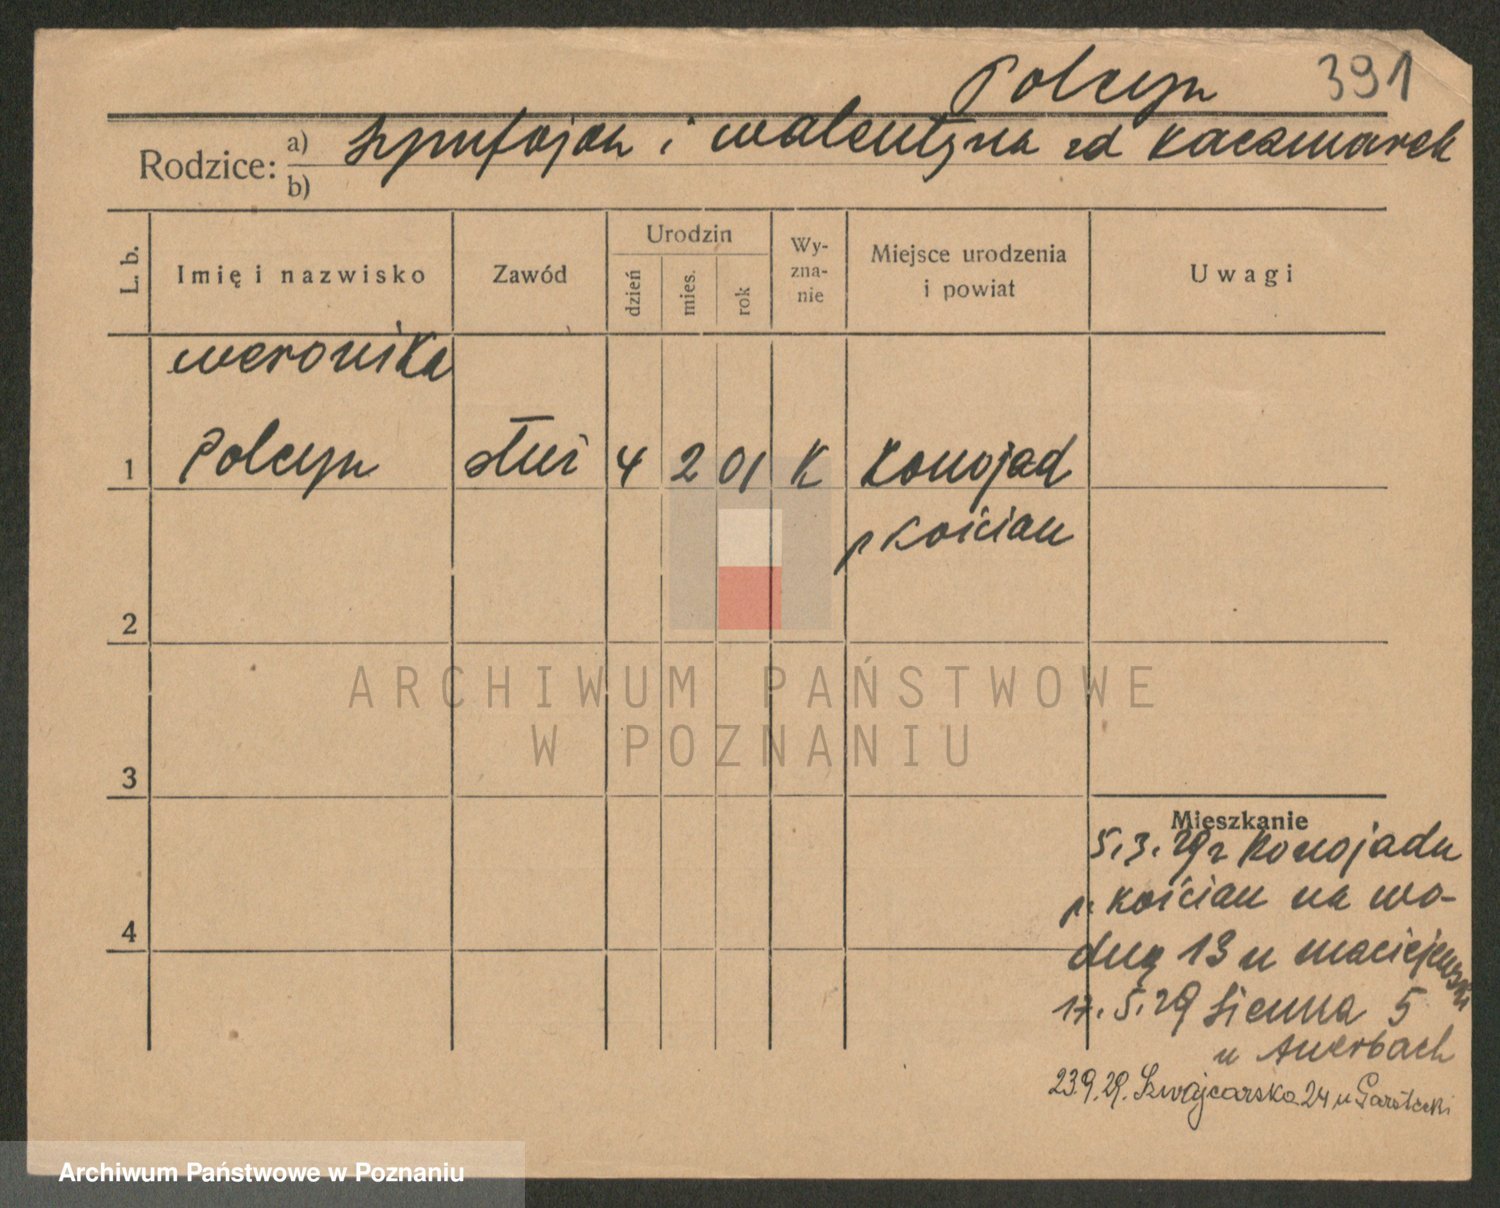 Polcyn 391
Rodzice: a) Symforjan i Walentyna zd Kaczmarek
b)
L. b.
Imię i nazwisko
Zawód
Urodzin
dzień
mies.
rok
Wy-
zna-
nie
Miejsce urodzenia
i powiat
Uwagi
Weronika
1 Polcyn służ 4 2 01 K Konojad
p Kościan
2
3
4
Mieszkanie
5.3.29 z Konojadu
p. Kościan na Wo-
dną 13 u Maciejewski
17.5.29 Sienna 5
u Auerbach
23.9.29. Szwajcarska 24 u Garstecki
ARCHIWUM PAŃSTWOWE
W POZNANIU
Archiwum Państwowe w Poznaniu